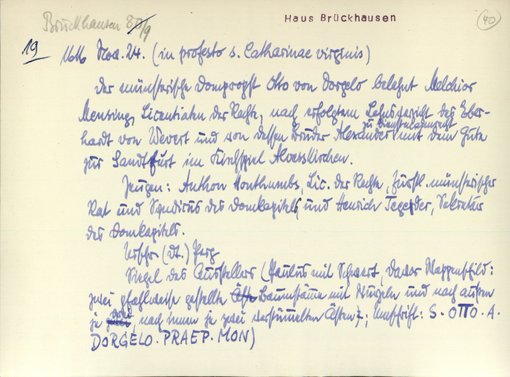 Brückhausen 8/9
Haus Brückhausen
40
19
1616 Nov. 24. (in profesto s. Catharinae virginis)
Der münsterische Dompropst Otto von Dorgelo belehnt Melchior
Mensing, Licentiaten der Rechte, nach erfolgtem Lehnsverzicht des Eber-
hardt von Wevert und von dessen Bruder Alexander mit dem Gute
zu Dienstmannsrecht
zur Sandtfurt im Kirchspiel Alverskirchen.
Zeugen: Anthon Honthumbs, Lic. der Rechte, Fürstl. münsterischer
Rat und Syndicus des Domkapitels und Henrich Tegeder, Sekretär
des Domkapitels.
Urschr. (dt.) Perg.
Siegel des Ausstellers (Paulus mit Schwert. Davor Wappenschild:
zwei pfahlweise gestellte Baumstämme mit Wurzeln und nach außen
je nach innen je zwei verstümmelten Ästen; Umschrift: S. OTTO. A.
DORGELO. PRAEP. MON)